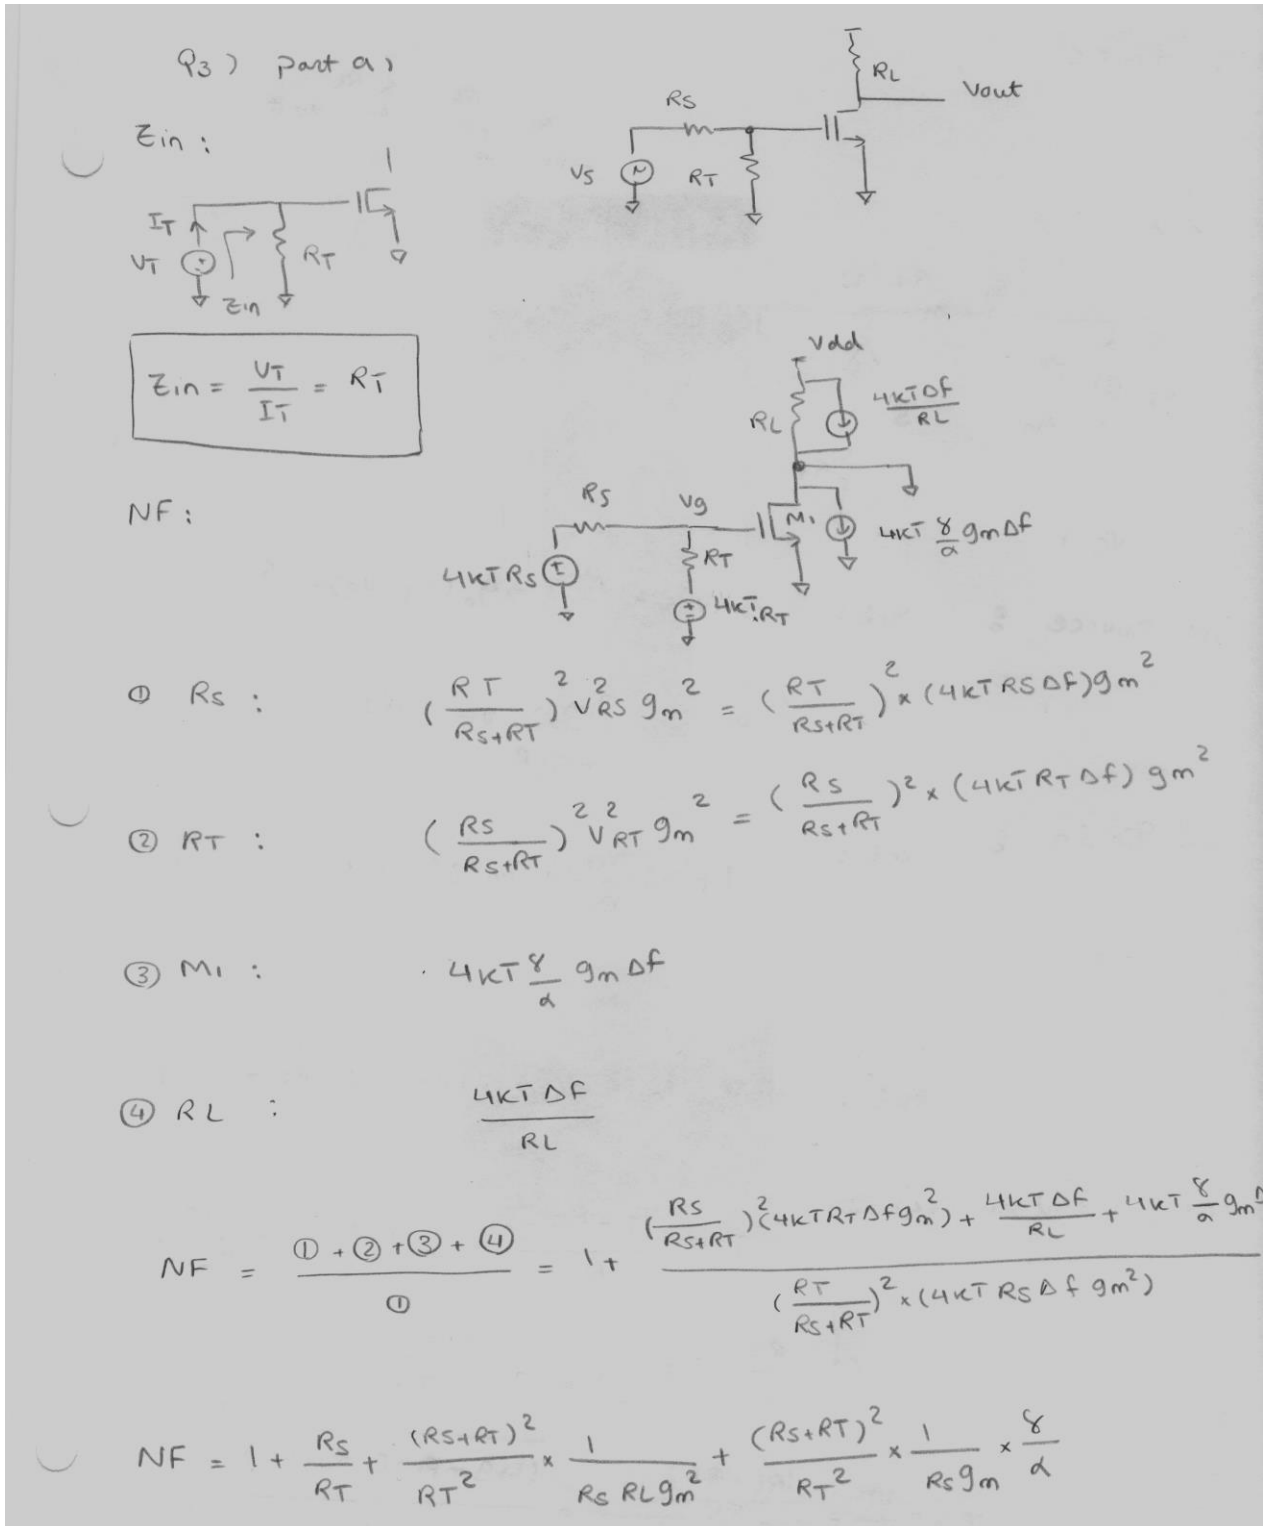 Q3) part a)
RL
Vout
RS
Zin :
VS
RT
IT
VT
RT
Zin
Zin = VT/IT = RT
Vdd
RL
4KTΔf/RL
NF :
RS
Vg
M1
4KT γ/α gmΔf
RT
4KTRS
4KT.RT
① RS : (RT/(RS+RT))² V²RS gm² = (RT/(RS+RT))² × (4KTRSΔf)gm²
② RT : (RS/(RS+RT))² V²RT gm² = (RS/(RS+RT))² × (4KTRTΔf) gm²
③ M1 : 4KT γ/α gmΔf
④ RL : 4KTΔf/RL
NF = (① + ② + ③ + ④)/① = 1 + ((RS/(RS+RT))²(4KTRTΔfgm²) + 4KTΔf/RL + 4KT γ/α gmΔ)/((RT/(RS+RT))² × (4KTRSΔfgm²))
NF = 1 + RS/RT + (RS+RT)²/RT² × 1/(RS RL gm²) + (RS+RT)²/RT² × 1/(RS gm) × γ/α